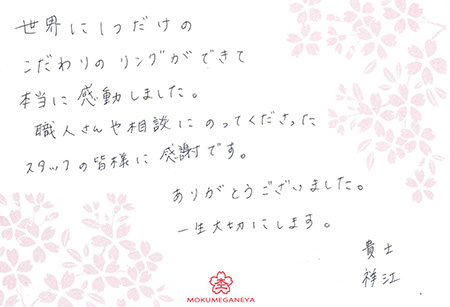 世界に1つだけの
こだわりのリングができて
本当に感動しました。
職人さんや相談にのってくださった
スタッフの皆様に感謝です。
ありがとうございました。
一生大切にします。
貴士
祥江
MOKUMEGANEYA